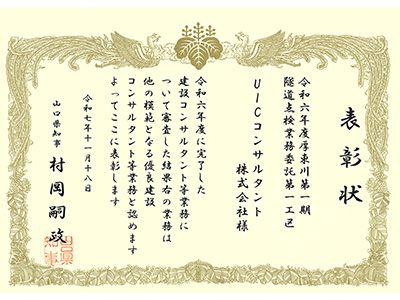 表彰状
令和六年度厚東川第一期
隧道点検業務委託第一工区
UICコンサルタント
株式会社様
令和六年度に完了した
建設コンサルタント等業務に
ついて審査した結果右の業務は
他の模範となる優良建設
コンサルタント等業務と認めます
よってここに表彰します
令和七年十一月十八日
山口県知事 村岡嗣政